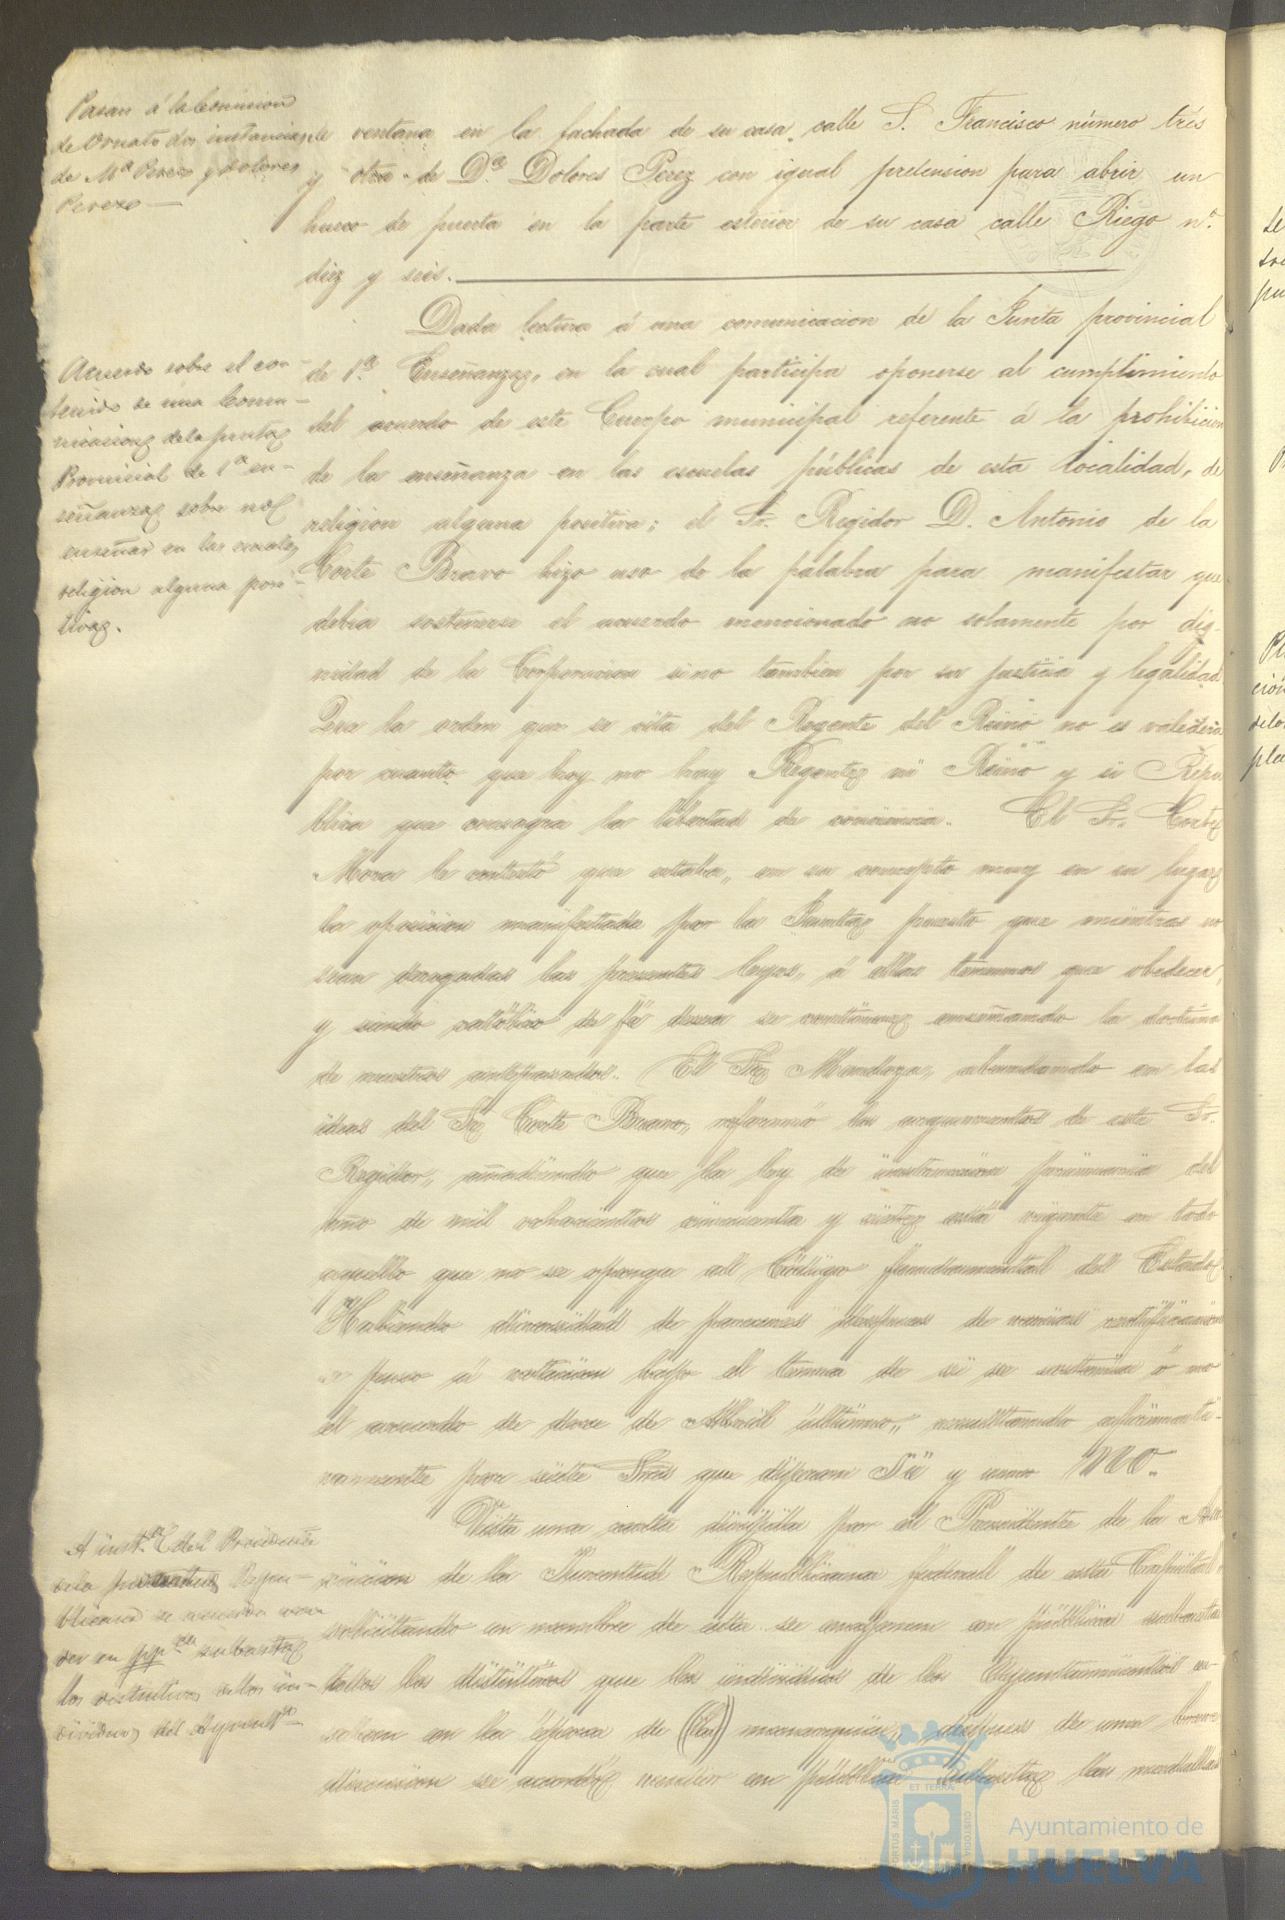 Pasan á la Comision
de Ornato dos instancias
de Mª Perez y Dolores
Perez
de ventana en la fachada de su casa calle S. Francisco número trés
y otra de Dª Dolores Perez con igual pretension para abrir un
hueco de puerta en la parte esterior de su casa calle Riego nº
diez y seis.
Acuerdo sobre el con-
tenido de una Comu-
nicacion de la Junta
Provincial de 1ª en-
señanza sobre no
enseñar en las escuelas
religion alguna posi-
tiva.
Dada lectura á una comunicacion de la Junta provincial
de 1ª Enseñanza, en la cual participa oponerse al cumplimiento
del acuerdo de este Cuerpo municipal referente á la prohibicion
de la enseñanza en las escuelas públicas de esta localidad, de
religion alguna positiva; el Sr. Regidor D. Antonio de la
Corte Bravo hizo uso de la palabra para manifestar que
debia sostenerse el acuerdo mencionado no solamente por dig-
nidad de la Corporacion sino tambien por su justicia y legalidad
Que la orden que se cita del Regente del Reino no es valedera
por cuanto que hoy no hay Regente ni Reino y si Repu
blica que consagra la libertad de conciencia. El Sr. Corte
Mora le contestó que estaba, en su concepto muy en su lugar
la oposicion manifestada por la Junta puesto que mientras no
sean derogadas las presentes leyes, á ellas tenemos que obedecer,
y siendo católico de fé desea se continue enseñando la doctrina
de nuestros antepasados. El Sr Mendoza, abundando en las
ideas del Sr Corte Bravo, reforzó los argumentos de este Sr.
Regidor, añadiendo que la ley de instruccion primaria del
año de mil ochocientos cincuenta y siete está vigente en todo
aquello que no se oponga al Código fundamental del Estado
Habiendo diversidad de pareceres despues de varias rectificaciones
se puso á votacion bajo el tema de si se sostenia ó no
el acuerdo de doce de Abril último, resultando afirmati-
vamente por siete Sres que dijeron Si y uno NO.
A instª del Presidente
de la Juventud Repu-
blicana se acuerda ven-
der en ppca subasta
los distintivos de los in-
dividuos del Ayuntto
Vista una carta dirijida por el Presidente de la Aso
ciacion de la Juventud Republicana federal de esta Capital
solicitando en nombre de esta se enajenen en pública subasta
todos los distintivos que los individuos de los Ayuntamientos u-
saban en la época de (la) monarquia, despues de una breve
discusion se acordó vender en pública subasta las medallas
ET TERRÆ
PORTUS MARIS
CUSTODIA
Ayuntamiento de
HUELVA